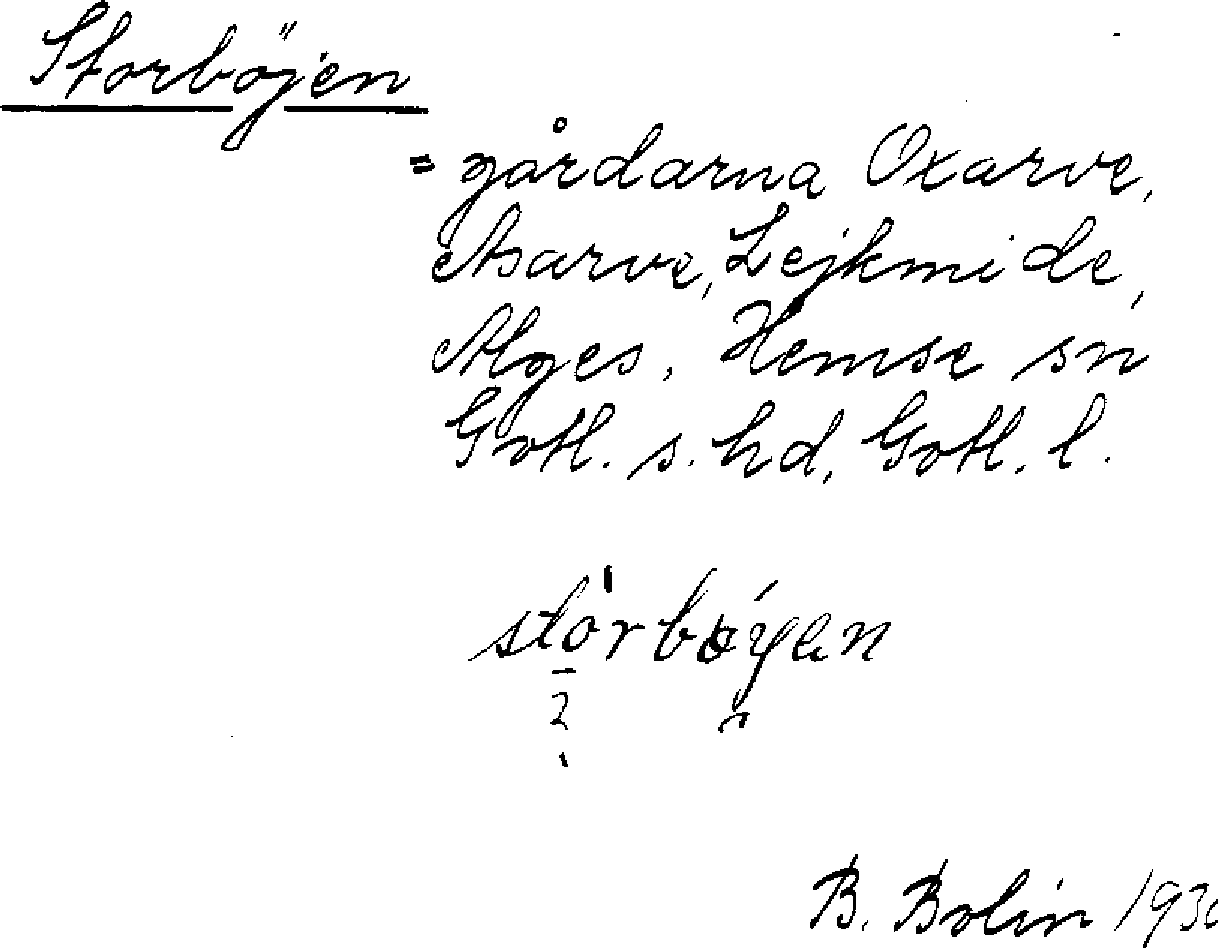 Storböjen
= gårdarna Oxarve,
Asarve, Lejkmide,
Alges, Hemse sn
Gotl. s. hd, Gotl. l.
B. Bolin